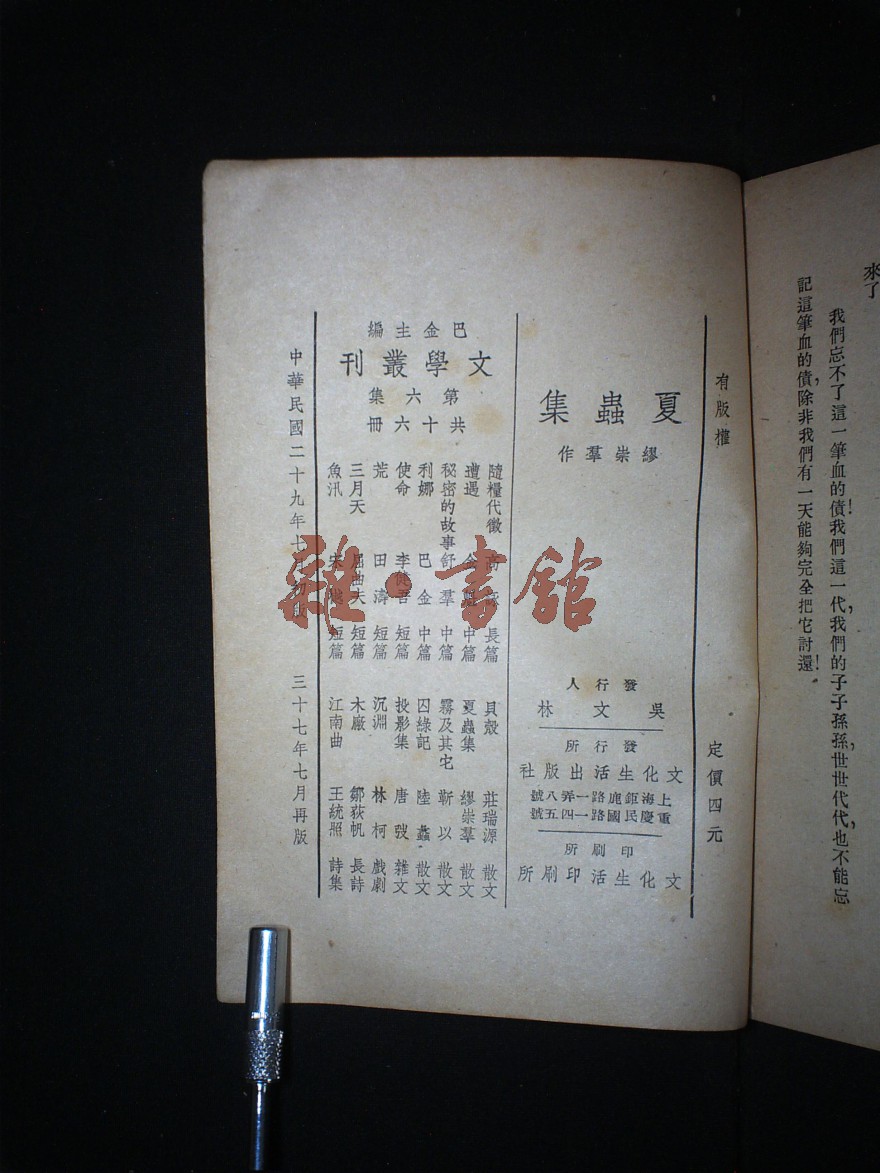 來了
我們忘不了這一筆血的債！我們這一代，我們的子子孫孫，世世代代，也不能忘
記這筆血的債，除非我們有一天能夠完全把它討還！
有版權
定價四元
夏蟲集
繆崇羣作
發行人
吳文林
發行所
文化生活出版社
上海鉅鹿路一弄八號
重慶民國路一四五號
印刷所
文化生活印刷所
巴金主編
文學叢刊
第六集
共十六冊
隨糧代徵 高 長篇
遭遇 中篇
秘密的故事 舒羣 中篇
利娜 巴金 中篇
使命 李健吾 短篇
荒 田濤 短篇
三月天 屈曲夫 短篇
魚汛 宋 短篇
貝殼 莊瑞源 散文
夏蟲集 繆崇羣 散文
霧及其它 靳以 散文
囚綠記 陸蠡 散文
投影集 唐弢 雜文
沉淵 林柯 戲劇
木廠 鄒荻帆 長詩
江南曲 王統照 詩集
中華民國二十九年七月初版
三十七年七月再版
雜·書館